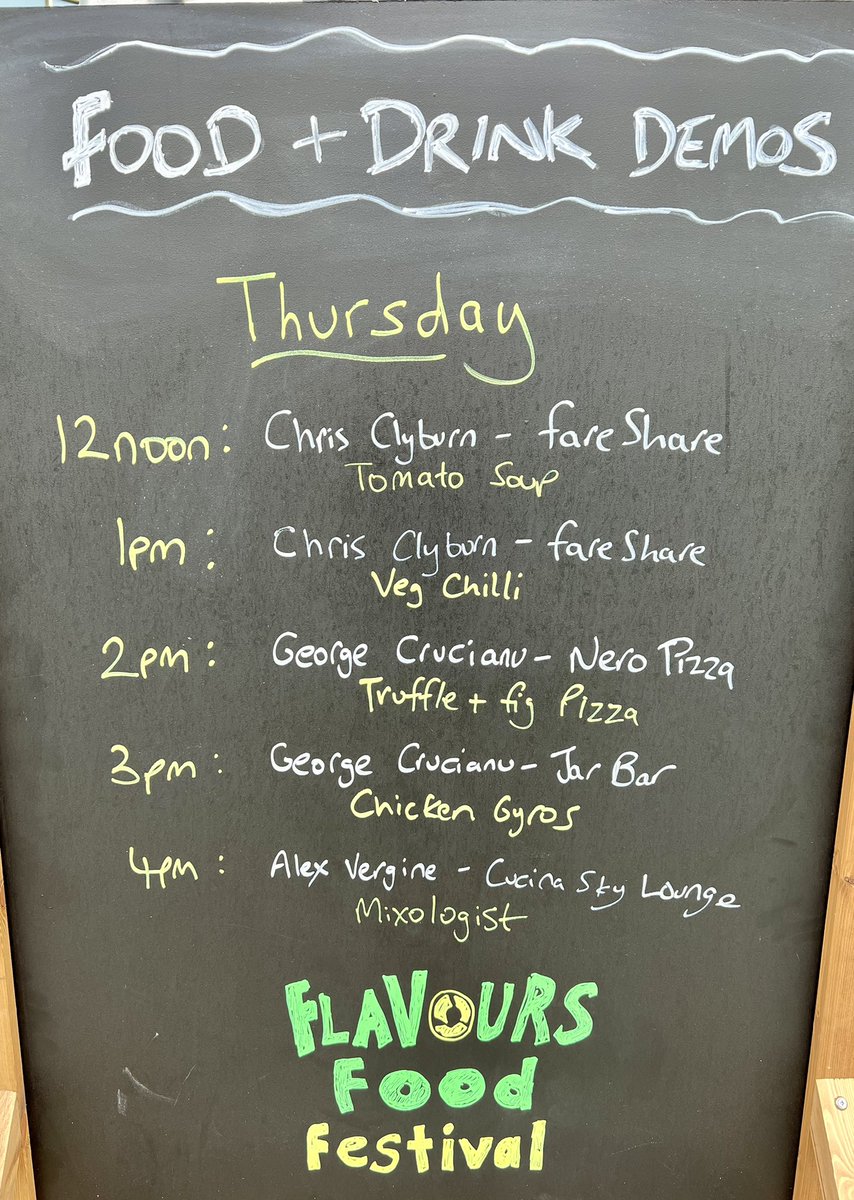 FOOD + DRINK DEMOS
Thursday
12noon: Chris Clyburn - fareShare
Tomato Soup
1pm: Chris Clyburn - fareShare
Veg Chilli
2pm: George Crucianu - Nero Pizza
Truffle + fig Pizza
3pm: George Crucianu - Jar Bar
Chicken Gyros
4pm: Alex Vergine - Cucina Sky Lounge
Mixologist
FLAVOURS
FOOD
Festival